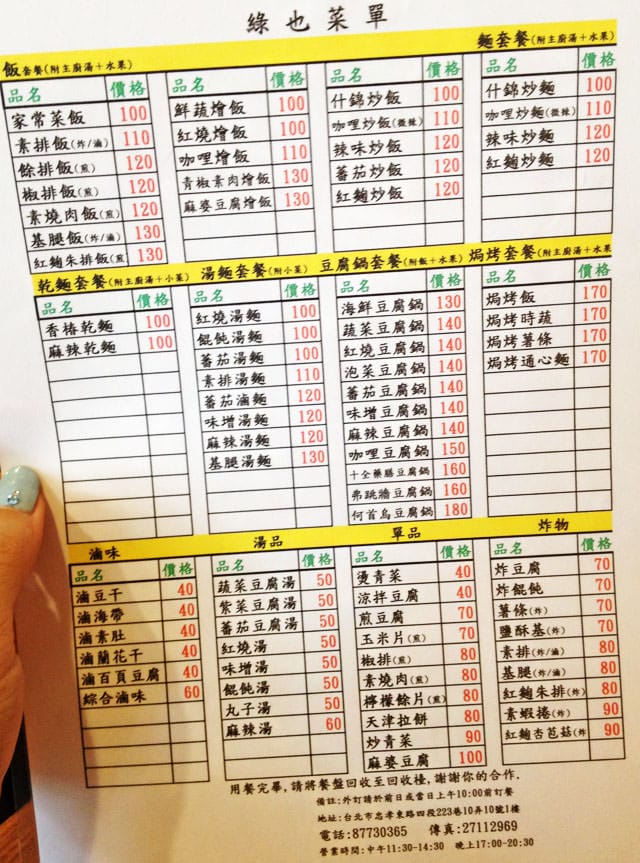 綠也菜單
飯套餐(附主廚湯+水果)
麵套餐(附主廚湯+水果)
品名 價格
家常菜飯 100
素排飯(炸/滷) 110
餘排飯(煎) 120
椒排飯(煎) 120
素燒肉飯(煎) 120
基腿飯(炸/滷) 130
紅麴朱排飯(煎 130
品名 價格
鮮蔬燴飯 100
紅燒燴飯 100
咖哩燴飯 110
青椒素肉燴飯 130
麻婆豆腐燴飯 130
品名 價格
什錦炒飯 100
咖哩炒飯(微辣) 110
辣味炒飯 120
蕃茄炒飯 120
紅麴炒飯 120
品名 價格
什錦炒麵 100
咖哩炒麵(微辣) 110
辣味炒麵 120
紅麴炒麵 120
乾麵套餐(附主廚湯+小菜)
品名 價格
香椿乾麵 100
麻辣乾麵 100
湯麵套餐(附小菜)
品名 價格
紅燒湯麵 100
餛飩湯麵 100
蕃茄湯麵 100
素排湯麵 110
蕃茄滷麵 120
味增湯麵 120
麻辣湯麵 120
基腿湯麵 130
豆腐鍋套餐(附飯+水果)
品名 價格
海鮮豆腐鍋 130
蔬菜豆腐鍋 140
紅燒豆腐鍋 140
泡菜豆腐鍋 140
蕃茄豆腐鍋 140
味增豆腐鍋 140
麻辣豆腐鍋 140
咖哩豆腐鍋 150
十全藥膳豆腐鍋 160
弗跳牆豆腐鍋 160
何首烏豆腐鍋 180
焗烤套餐(附主廚湯+水果
品名 價格
焗烤飯 170
焗烤時蔬 170
焗烤薯條 170
焗烤通心麵 170
滷味
品名 價格
滷豆干 40
滷海帶 40
滷素肚 40
滷蘭花干 40
滷百頁豆腐 40
綜合滷味 60
湯品
品名 價格
蔬菜豆腐湯 50
紫菜豆腐湯 50
蕃茄豆腐湯 50
紅燒湯 50
味增湯 50
餛飩湯 50
丸子湯 50
麻辣湯 60
單品
品名 價格
燙青菜 40
涼拌豆腐 40
煎豆腐 70
玉米片(煎) 70
椒排(煎) 80
素燒肉(煎) 80
檸檬餘片(煎) 80
天津拉餅 80
炒青菜 90
麻婆豆腐 100
炸物
品名 價格
炸豆腐 70
炸餛飩 70
薯條(炸) 70
鹽酥基(炸) 70
素排(炸/滷) 80
基腿(炸/滷) 80
紅麴朱排(炸) 80
素蝦捲(炸) 90
紅麴杏芭菇(炸 90
用餐完畢,請將餐盤回收至回收檯,謝謝你的合作.
備註:外訂請於前日或當日上午10:00前訂餐
地址:台北市忠孝東路四段223巷10弄10號1樓
電話:87730365 傳真:27112969
營業時間:中午11:30-14:30 晚上17:00-20:30